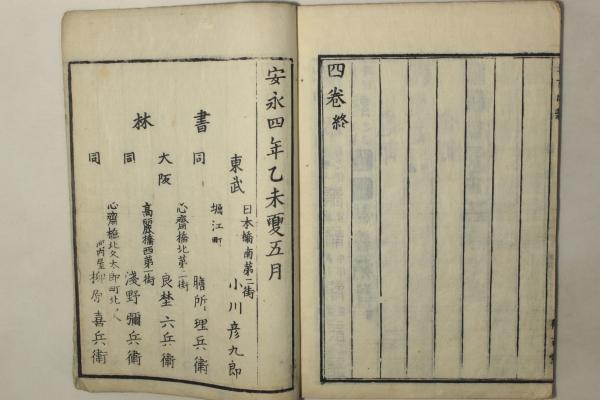 四卷終
安永四年乙未夏五月
書林
東武 日本橋南第二街 小川彦九郎
同 堀江町 膳所理兵衛
大阪 心齋橋北第二街 良埜六兵衛
同 高麗橋西第一街 淺野彌兵衛
同 心齋橋北久太郎町北 河内屋 柳原喜兵衛